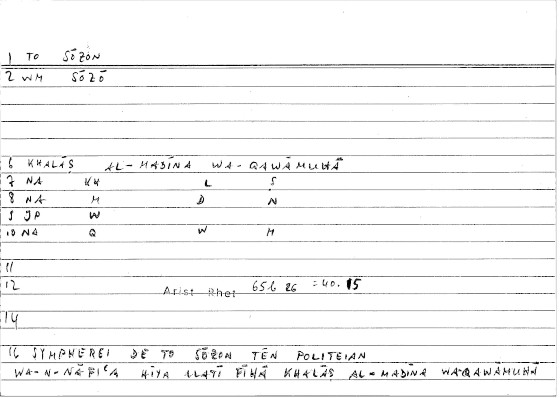 1 TO SŌZŌN
2 WM SŌZŌ
6 KHALĀṢ AL-MADĪNA WA-QAWĀMUHĀ
7 NA KH L Ṣ
8 NA M D N
9 JP W
10 NA Q W M
11
12 Arist Rhet 656 26 =40.15
14
16 SYMPHEREI DE TO SŌZON TĒN POLITEIAN
WA-N-NĀFIʿA HIYA ALLATĪ FĪHĀ KHALĀṢ AL-MADĪNA WAQAWĀMUHĀ